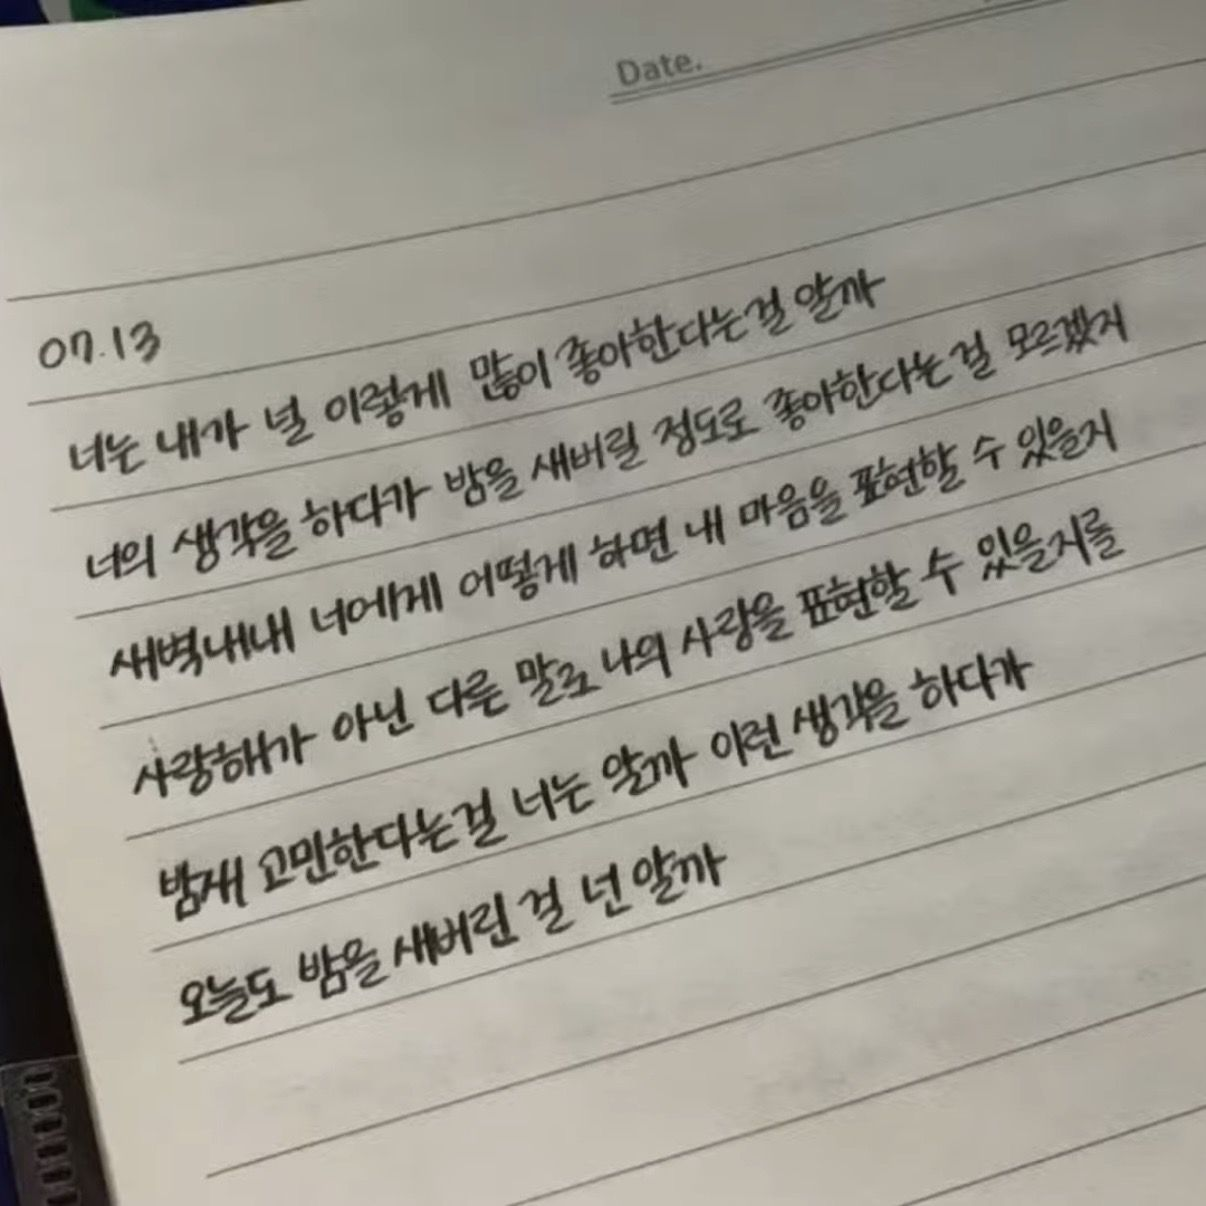 Date.
07.13
너는 내가 널 이렇게 많이 좋아한다는걸 알까
너의 생각을 하다가 밤을 새버릴 정도로 좋아한다는 걸 모르겠지
새벽내내 너에게 어떻게 하면 내 마음을 표현할 수 있을지
사랑해가 아닌 다른 말로 나의 사랑을 표현할 수 있을지를
밤새 고민한다는걸 너는 알까 이런 생각을 하다가
오늘도 밤을 새버린 걸 넌 알까